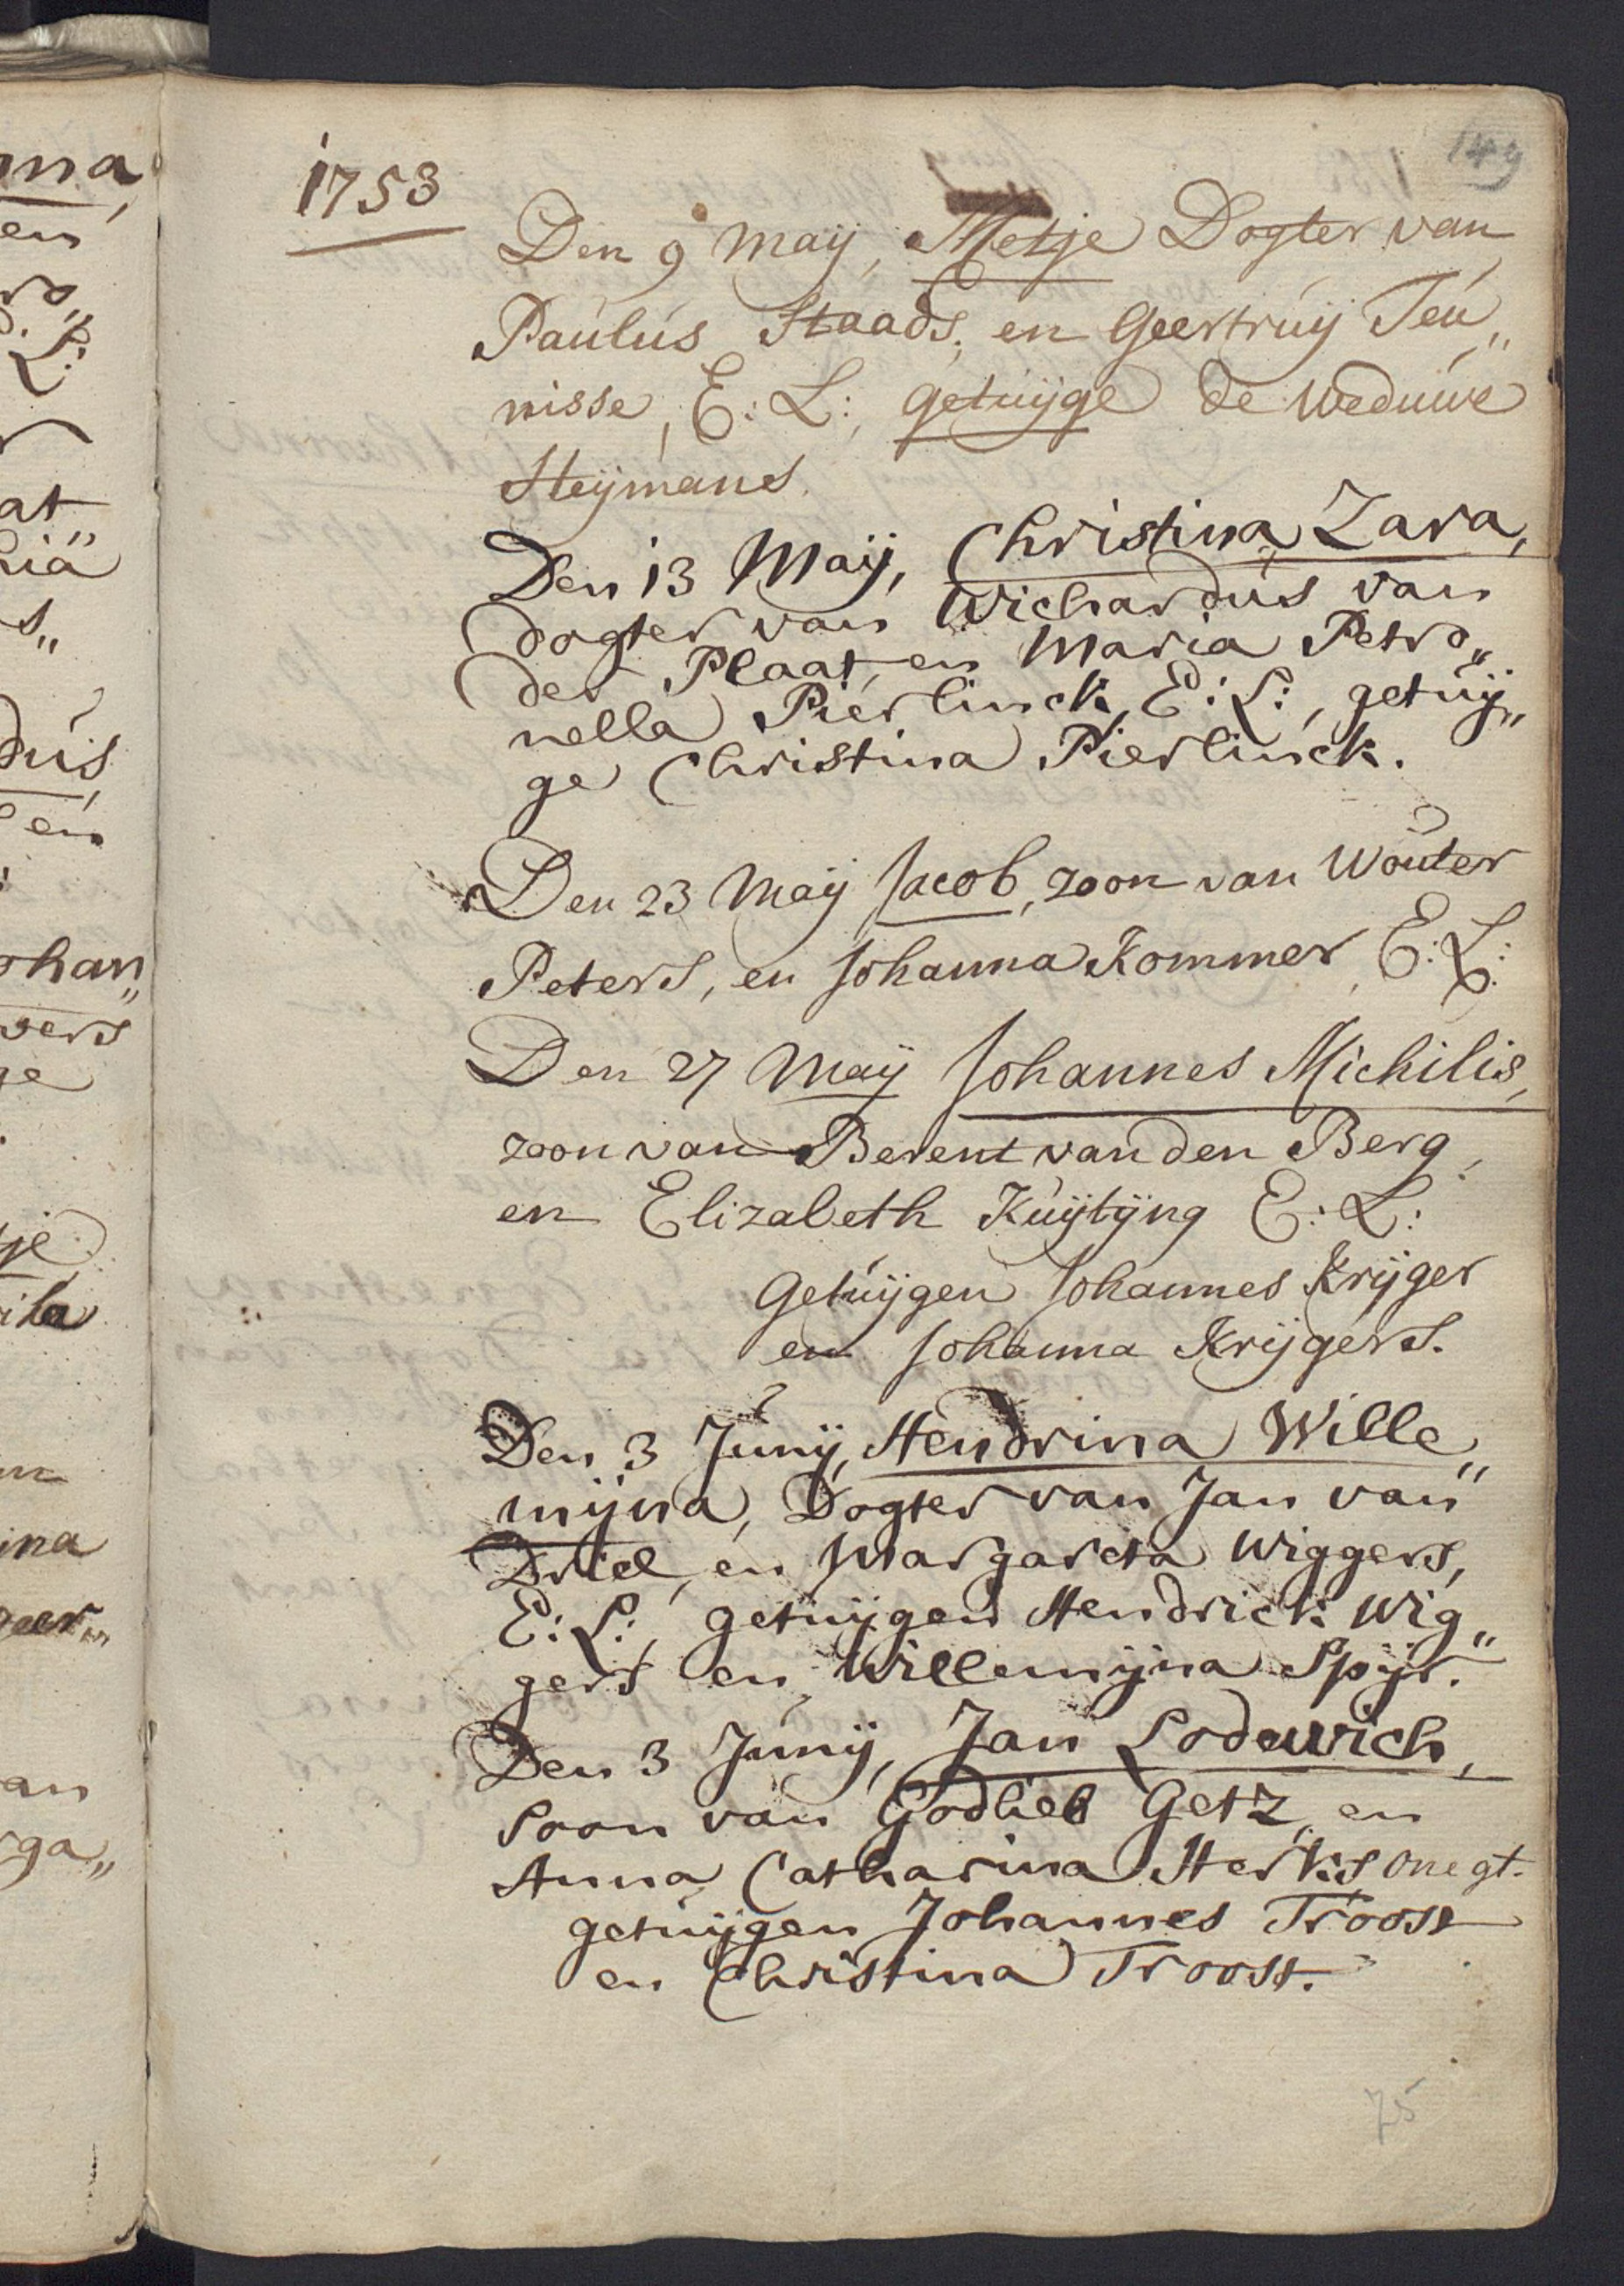 149
1753
Den 9 Maij, Metje Dogter van
Paulus Staads, en Geertruij Teu„
nisse, E: L: getuijge de Weduwe
Heijmans.
Den 13 Maij, Christina Zara,
dogter van Wichardus van
der Plaat, en Maria Petro„
nella Pierlinck, E: L:, getuij„
ge Christina Pierlinck.
Den 23 Maij Jacob, zoon van Wouter
Peters, en Johanna Kommer, E: L:
Den 27 Maij Johannes Michilis,
zoon van Berent van den Berg,
en Elizabeth Kuijtijng E: L:
Getuijgen Johannes Krijger
en Johanna Krijgers.
Den 3 Junij, Hendrina Wille„
mijna, Dogter van Jan van
Driel, en Margareta Wiggers,
E: L:, getuijgen Hendrick Wig„
gers en Willemijna Spijr.
Den 3 Junij, Jan Lodewich,
Soon van Godlieb Getz, en
Anna Catharina Herks onegt.
getuijgen Johannes Troost
en Christina Troost.
75